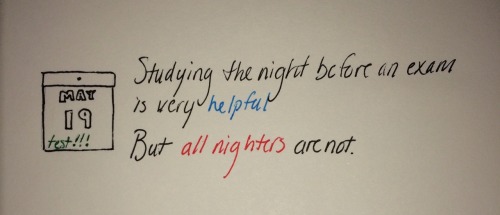 MAY
19
test!!!
Studying the night before an exam
is very helpful
But all nighters are not.